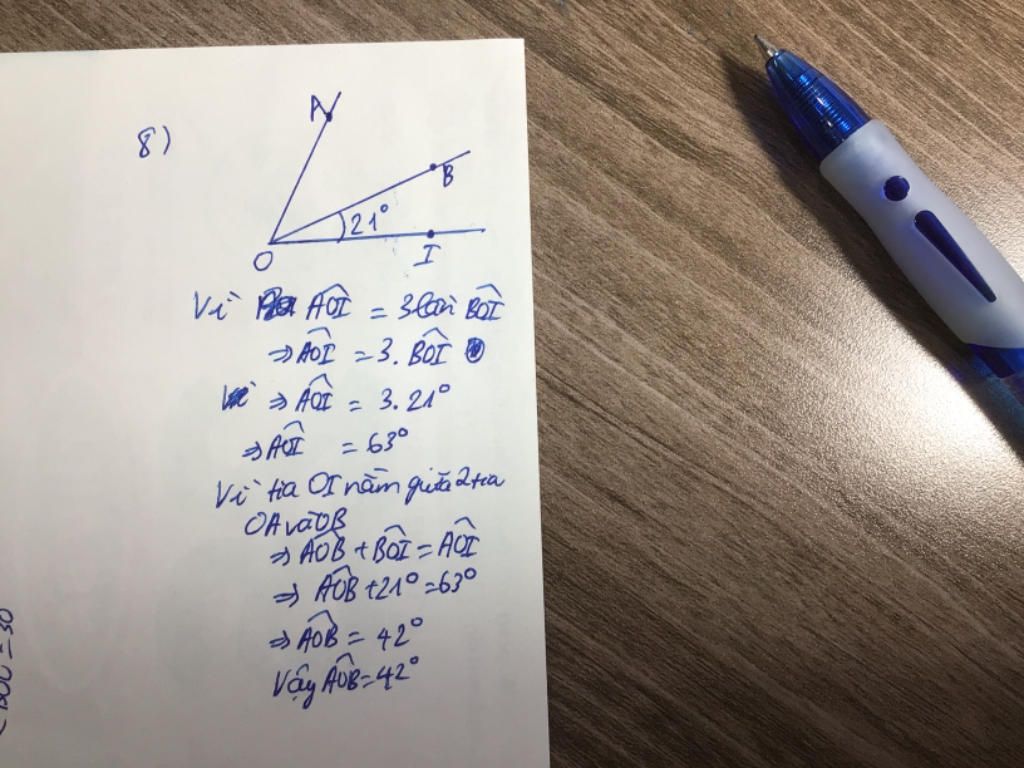 8)
A
B
21°
O
I
Vì AÔI = 3 lần BÔI
⇒ AÔI = 3. BÔI
⇒ AÔI = 3. 21°
⇒ AÔI = 63°
Vì tia OI nằm giữa 2 tia
OA và OB
⇒ AÔB + BÔI = AÔI
⇒ AÔB + 21° = 63°
⇒ AÔB = 42°
Vậy AÔB = 42°
= 30